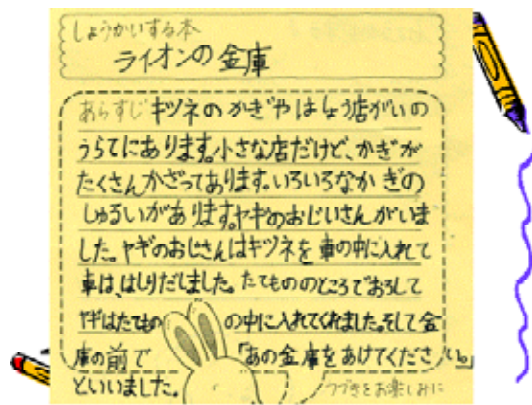 しょうかいする本
ライオンの金庫
あらすじ キツネのかぎやはしょう店がいの
うらてにあります。小さな店だけど、かぎが
たくさんかざってあります。いろいろなかぎの
しゅるいがあります。ヤギのおじいさんがいま
した。ヤギのおじさんはキツネを車の中に入れて
車は、はしりだしました。たてもののところでおろして
ヤギはたてもの の中に入れてくれました。そして金
庫の前で 「あの金庫をあけてください。」
といいました。 つづきをお楽しみに